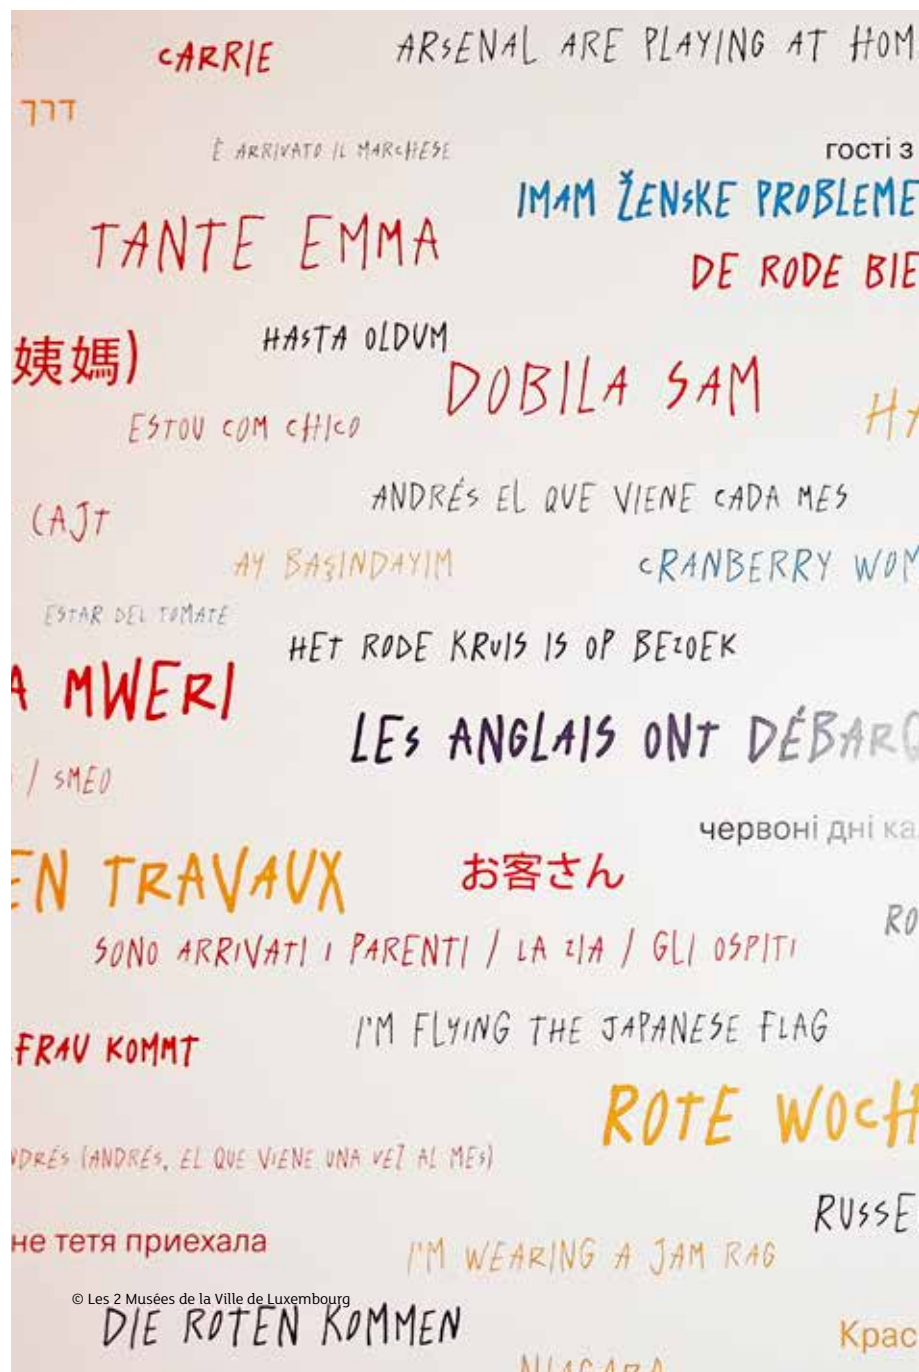 CARRIE
ARSENAL ARE PLAYING AT HOM
דרך
È ARRIVATO IL MARCHESE
гості з
IMAM ŽENSKE PROBLEME
TANTE EMMA
DE RODE BIE
姨媽)
HASTA OLDUM
DOBILA SAM
HA
ESTOU COM CHICO
ANDRÉS EL QUE VIENE CADA MES
CAJT
AY BAŞINDAYIM
CRANBERRY WOM
ESTAR DEL TOMATE
HET RODE KRUIS IS OP BEZOEK
A MWERI
LES ANGLAIS ONT DÉBARQ
/ SMEO
червоні дні ка
EN TRAVAUX
お客さん
RO
SONO ARRIVATI I PARENTI / LA ZIA / GLI OSPITI
I'M FLYING THE JAPANESE FLAG
FRAU KOMMT
ROTE WOCH
NDRÉS (ANDRÉS, EL QUE VIENE UNA VEZ AL MES)
RUSSE
не тетя приехала
I'M WEARING A JAM RAG
© Les 2 Musées de la Ville de Luxembourg
DIE ROTEN KOMMEN
Крас
NIAGARA